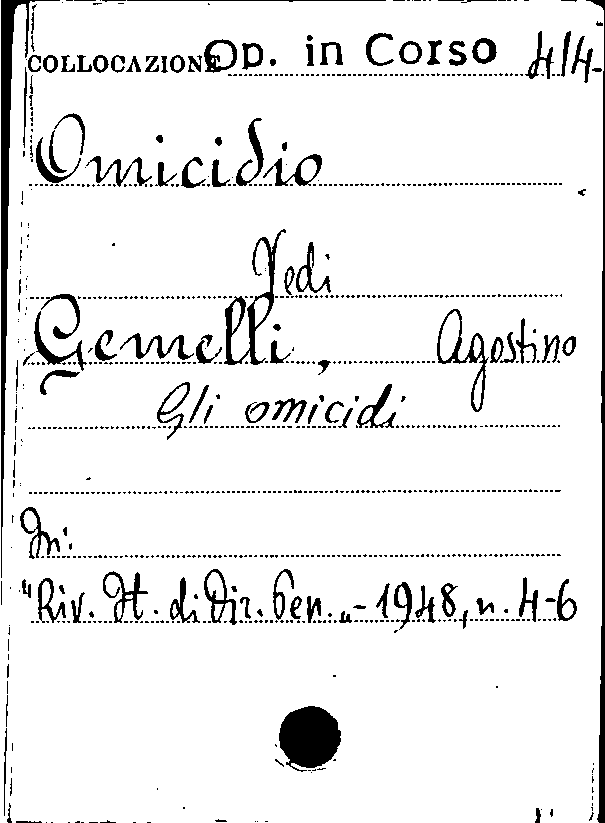 COLLOCAZIONE Op. in Corso 414-
Omicidio
Vedi
Gemelli, Agostino
Gli omicidi
In:
"Riv. It. di Dir. Pen. „ - 1948, n. 4-6